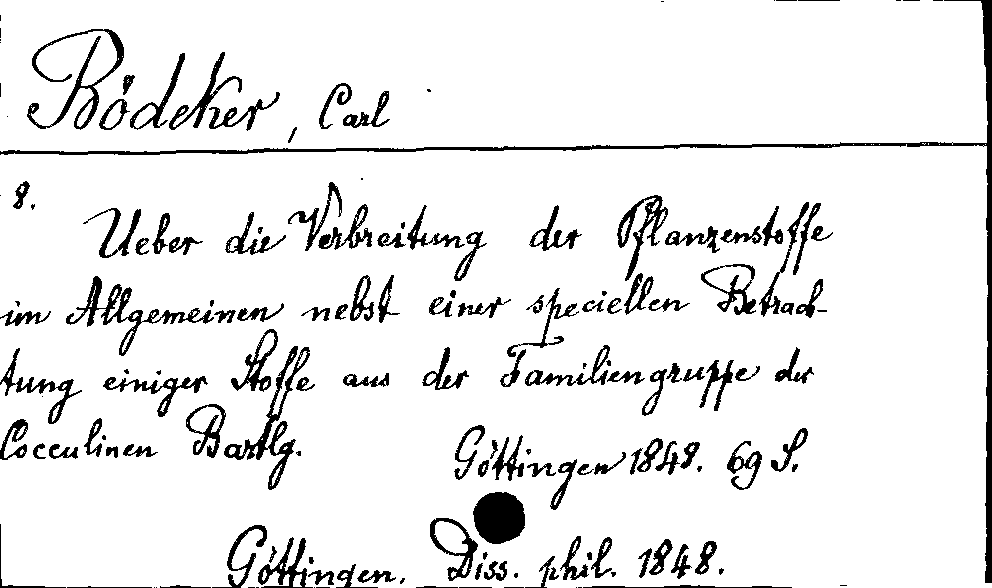 Bödeker, Carl
8.
Ueber die Verbreitung der Pflanzenstoffe
im Allgemeinen nebst einer speciellen Betrach-
tung einiger Stoffe aus der Familiengruppe der
Cocculinen Bartlg.
Göttingen 1848. 69 S.
Göttingen, Diss. phil. 1848.